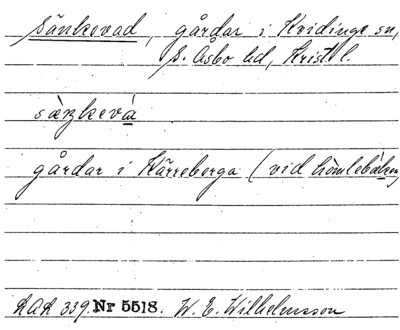 Sänkevad, gårdar i Kvidinge sn,
S. Åsbo hd, Krist. l.
sàŋkevá
gårdar i Kärreberga (vid hòmlebä̀ken)
LAL 339. Nr 5518. W. E. Wilhelmsson